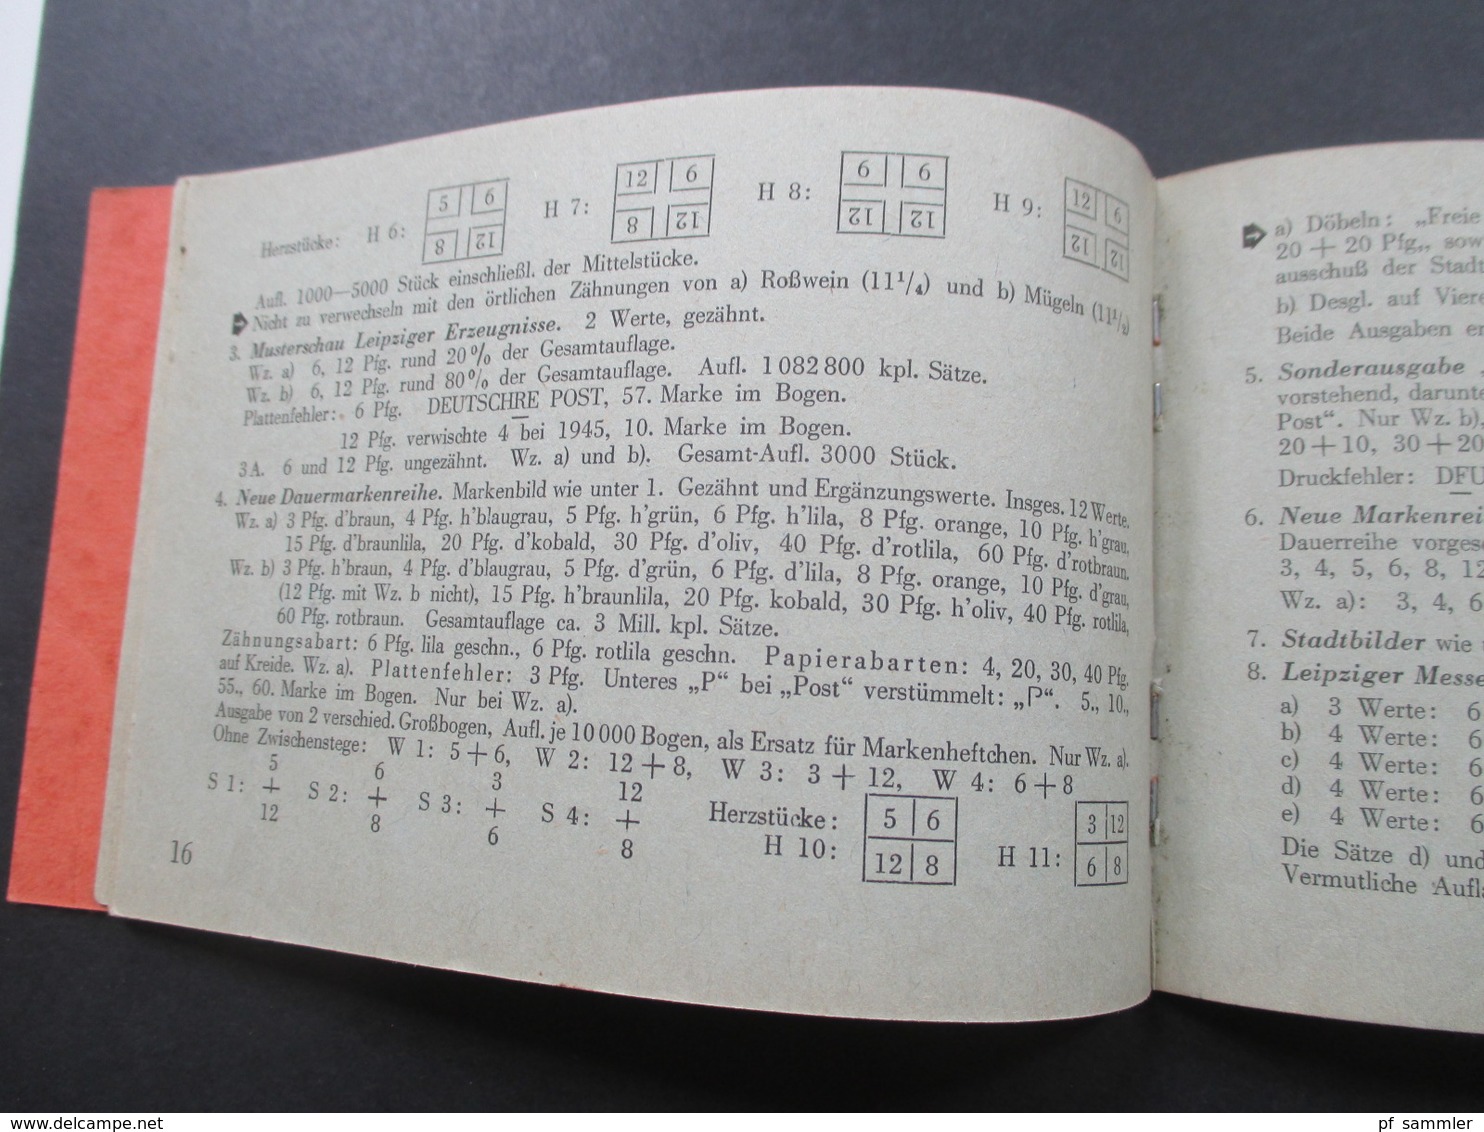 Herzstücke: H 6: 5 6 8 12 H 7: 12 6 8 12 H 8: 6 6 12 12 H 9: 12 6 12 12
Aufl. 1000—5000 Stück einschließl. der Mittelstücke.
Nicht zu verwechseln mit den örtlichen Zähnungen von a) Roßwein (11¹/₄) und b) Mügeln (11¹/₂)
3. Musterschau Leipziger Erzeugnisse. 2 Werte, gezähnt.
Wz. a) 6, 12 Pfg. rund 20% der Gesamtauflage.
Wz. b) 6, 12 Pfg. rund 80% der Gesamtauflage. Aufl. 1 082 800 kpl. Sätze.
Plattenfehler: 6 Pfg. DEUTSCHRE POST, 57. Marke im Bogen.
12 Pfg. verwischte 4 bei 1945, 10. Marke im Bogen.
3A. 6 und 12 Pfg. ungezähnt. Wz. a) und b). Gesamt-Aufl. 3000 Stück.
4. Neue Dauermarkenreihe. Markenbild wie unter 1. Gezähnt und Ergänzungswerte. Insges. 12 Werte.
Wz. a) 3 Pfg. d'braun, 4 Pfg. h'blaugrau, 5 Pfg. h'grün, 6 Pfg. h'lila, 8 Pfg. orange, 10 Pfg. h'grau,
15 Pfg. d'braunlila, 20 Pfg. d'kobald, 30 Pfg. d'oliv, 40 Pfg. d'rotlila, 60 Pfg. d'rotbraun.
Wz. b) 3 Pfg. h'braun, 4 Pfg. d'blaugrau, 5 Pfg. d'grün, 6 Pfg. d'lila, 8 Pfg. orange, 10 Pfg. d'grau,
(12 Pfg. mit Wz. b nicht), 15 Pfg. h'braunlila, 20 Pfg. kobald, 30 Pfg. h'oliv, 40 Pfg. rotlila,
60 Pfg. rotbraun. Gesamtauflage ca. 3 Mill. kpl. Sätze.
Zähnungsabart: 6 Pfg. lila geschn., 6 Pfg. rotlila geschn. Papierabarten: 4, 20, 30, 40 Pfg.
auf Kreide. Wz. a). Plattenfehler: 3 Pfg. Unteres „P“ bei „Post“ verstümmelt: „P“. 5., 10.,
55., 60. Marke im Bogen. Nur bei Wz. a).
Ausgabe von 2 verschied. Großbogen, Aufl. je 10 000 Bogen, als Ersatz für Markenheftchen. Nur Wz. a).
Ohne Zwischenstege: W 1: 5 + 6, W 2: 12 + 8, W 3: 3 + 12, W 4: 6 + 8
S 1: 5 + 12 S 2: 6 + 8 S 3: 3 + 6 S 4: 12 + 8 Herzstücke:
H 10: 5 6 12 8 H 11: 3 12 6 8
16
a) Döbeln: „Freie
20 + 20 Pfg„ sow
ausschuß der Stadt
b) Desgl. auf Viere
Beide Ausgaben er
5. Sonderausgabe „
vorstehend, darunte
Post“. Nur Wz. b),
20 + 10, 30 + 20
Druckfehler: DFU
6. Neue Markenrei
Dauerreihe vorgese
3, 4, 5, 6, 8, 12
Wz. a): 3, 4, 6
7. Stadtbilder wie
8. Leipziger Messe
a) 3 Werte: 6
b) 4 Werte: 6
c) 4 Werte: 6
d) 4 Werte: 6
e) 4 Werte: 6
Die Sätze d) und
Vermutliche Aufl
www.delcampe.net
pf_sammler